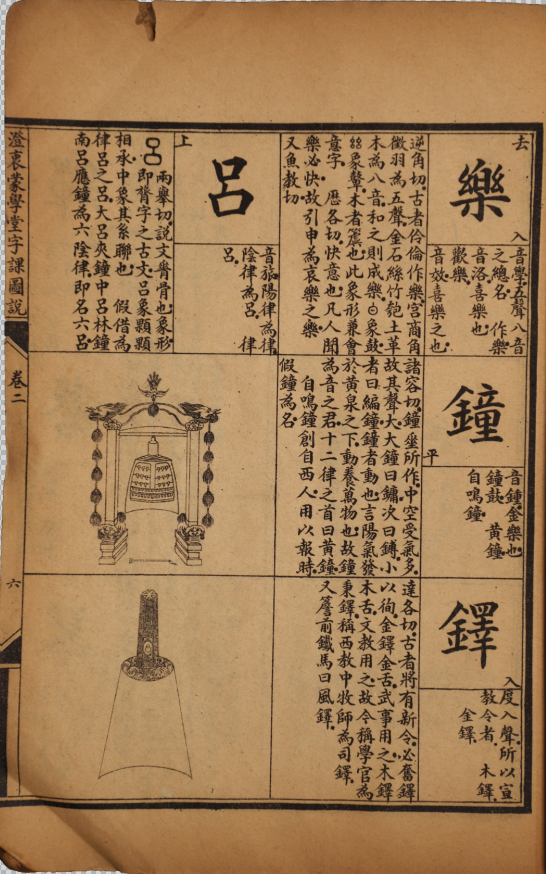 去
樂
入
音學五聲八音
之總名 作樂
音洛喜樂也
歡樂
音效喜樂之也
逆角切古者伶倫作樂宮商角
徵羽為五聲金石絲竹匏土革
木為八音和之則成樂白象鼓
絲象鼙木者簴也此象形兼會
意字 歷各切快意也凡人聞
樂必快故引申為哀樂之樂
又魚教切
上
呂
音旅陽律為律
陰律為呂 律
呂
兩舉切說文膂骨也象形
呂即膂字之古文呂象顆顆
相承中象其系聯也 假借為
律呂之呂大呂夾鐘中呂林鐘
南呂應鐘為六陰律即名六呂
鐘
平
音鍾金樂也
鐘鼓 黃鐘
自鳴鐘
諸容切鐘垂所作中空受氣多
故其聲大大鐘曰鏞次曰鎛小
者曰編鐘鐘者動也言陽氣發
於黃泉之下動養萬物也故鐘
為音之君十二律之首曰黃鐘
自鳴鐘創自西人用以報時
假鐘為名
鐸
入
度入聲所以宣
教令者 木鐸
金鐸
達各切古者將有新令必奮鐸
以徇金鐸金舌武事用之木鐸
木舌文教用之故今稱學官為
秉鐸稱西教中牧師為司鐸
又簷前鐵馬曰風鐸
澄衷蒙學堂字課圖說
卷二
六